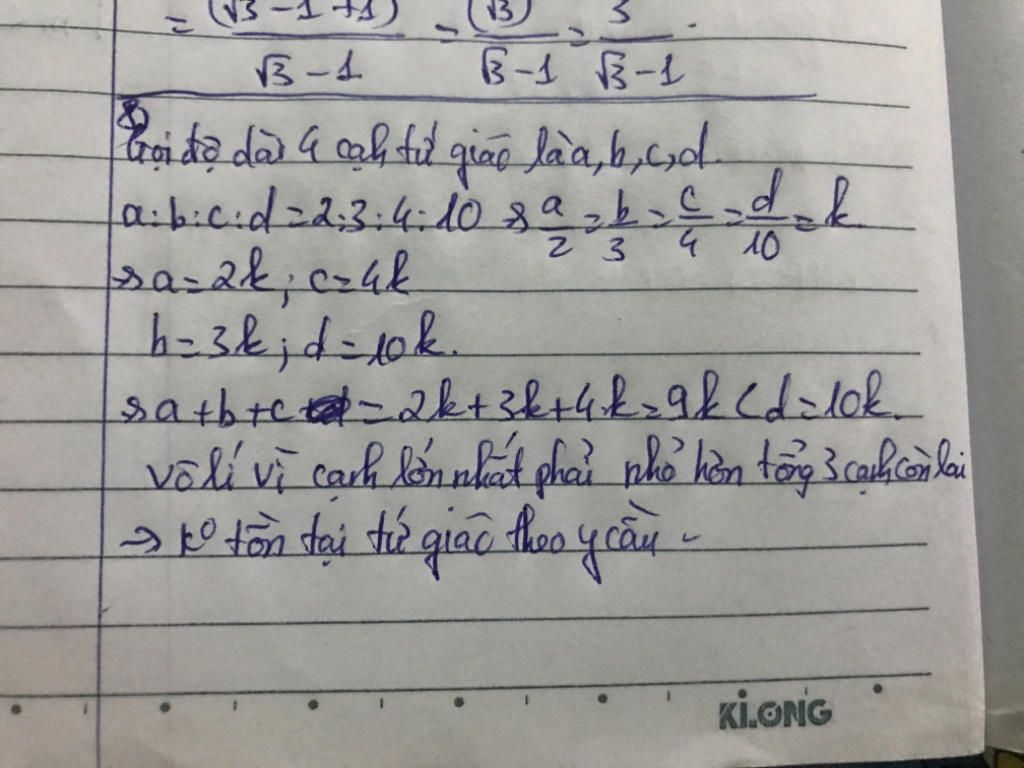 = (√3 - 1 + 1) / (√3 - 1) = (√3) / (√3 - 1) = 3 / (√3 - 1) .
8)
Gọi độ dài 4 cạh tứ giác là a, b, c, d.
a : b : c : d = 2 : 3 : 4 : 10 → a/2 = b/3 = c/4 = d/10 = k
→ a = 2k ; c = 4k
b = 3k ; d = 10k.
→ a + b + c = 2k + 3k + 4k = 9k < d = 10k.
vô lí vì cạh lớn nhất phải nhỏ hơn tổng 3 cạh còn lại
→ k⁰ tồn tại tứ giác theo y cầu -
KLONG